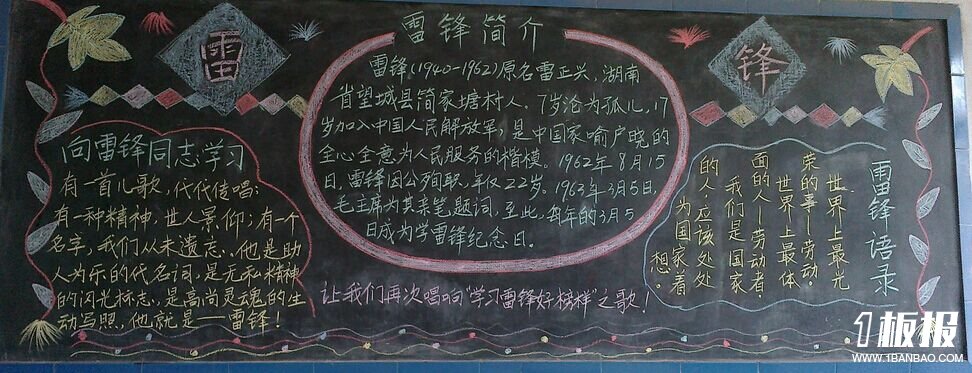 雷
雷锋简介
锋
雷锋(1940-1962)原名雷正兴，湖南
省望城县简家塘村人，7岁沦为孤儿，17
岁加入中国人民解放军，是中国家喻户晓的
全心全意为人民服务的楷模。1962年8月15
日，雷锋因公殉职，年仅22岁。1963年3月5日，
毛主席为其亲笔题词，至此，每年的3月5
日成为学雷锋纪念日。
向雷锋同志学习
有一首儿歌，代代传唱；
有一种精神，世人景仰；有一个
名字，我们从未遗忘。他是助
人为乐的代名词，是无私精神
的闪光标志，是高尚灵魂的生
动写照，他就是——雷锋！
让我们再次唱响“学习雷锋好榜样”之歌！
雷锋语录
世界上最光
荣的事—劳动。
世界上最体
面的人—劳动者。
我们是国家
的人，应该处处
为国家着
想。
1板报
WWW.1BANBAO.COM